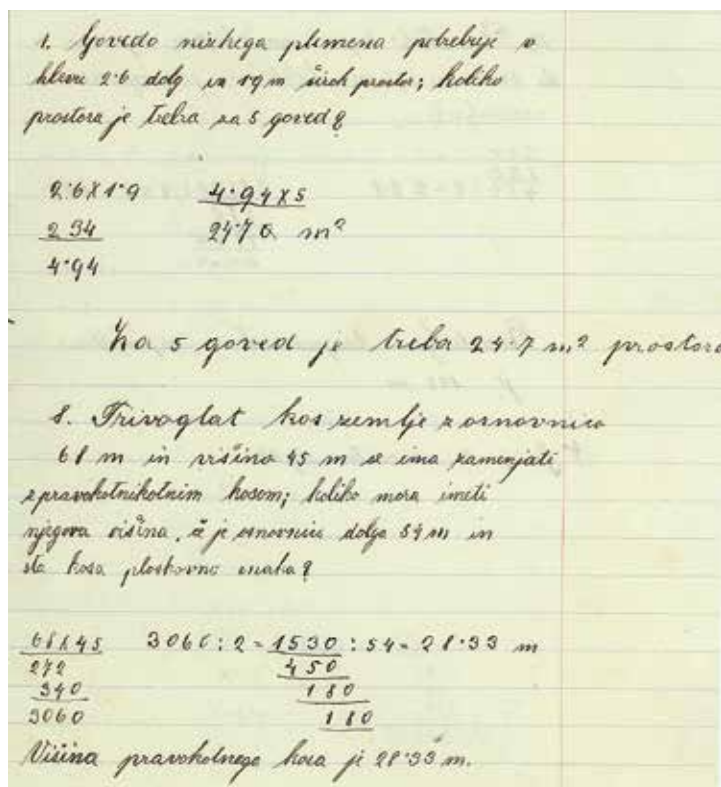 1. Govedo nizkega plemena potrebuje v
hlevu 2·6 dolg in 1·9 m širok prostor; koliko
prostora je treba za 5 goved?
2·6 X 1·9 4·94 X 5
2 34 24·70 m²
4·94
Za 5 goved je treba 24·7 m² prostora
8. Trivoglat kos zemlje z osnovnico
68 m in višino 45 m se ima zamenjati
s pravokotnikotnim kosom; koliko mora imeti
njegova višina, če je osnovnica dolga 54 m in
sta kosa ploskovno enaka?
68 X 45 3060 : 2 = 1530 : 54 = 28·33 m
272 450
340 180
3060 180
Višina pravokotnega kosa je 28·33 m.